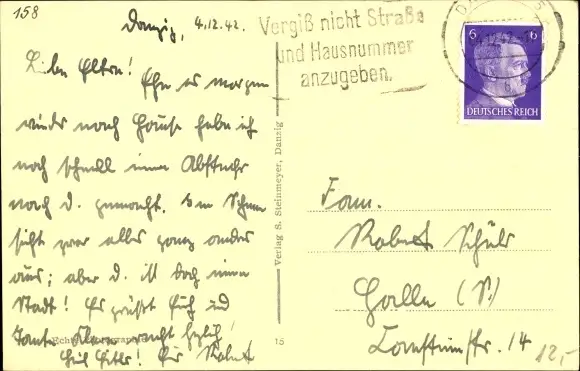 158
Danzig, 4.12.42.
Vergiß nicht Straße
und Hausnummer
anzugeben.
6 6
DEUTSCHES REICH
Liebe Eltern! Ehe es morgen
wieder nach Hause habe ich
noch schnell einen Abstecher
nach D. gemacht. Im Schnee
sieht zwar alles ganz anders
aus; aber D. ist doch eine
Stadt! Es grüßt Euch und
Tante recht herzlich,
Heil Hitler! Eur Robert
Verlag S. Steinmeyer, Danzig
15
Fam.
Robert Schulz
Halle (S.)
14
12,-